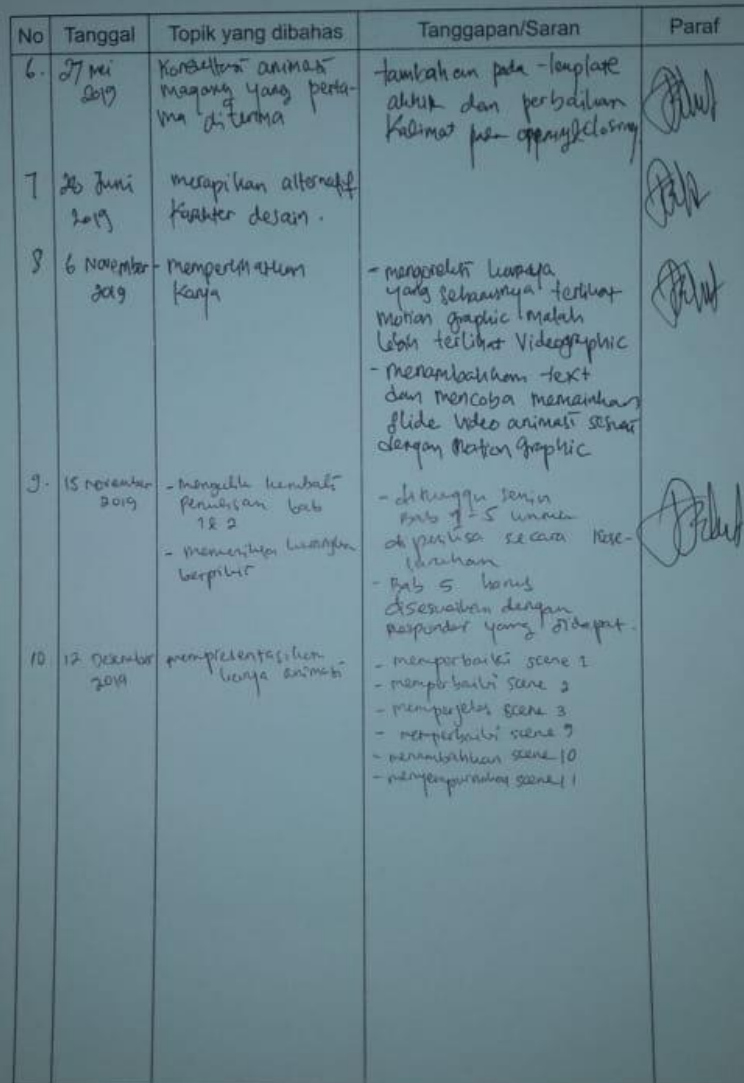 No Tanggal Topik yang dibahas Tanggapan/Saran Paraf
6. 27 Mei 2019
Konsultasi animasi
magang yang perta-
ma diterima
tambahan pada template
akhir dan perbaikan
Kalimat pada opening&closing
7 Juni
2019
merapikan alternatif
Karakter desain.
8 6 November
2019
- memperlihatkan
Karya
- mengoreksi karya
yang seharusnya terlihat
motion graphic malah
lebih terlihat Videographic
- menambahkan text
dan mencoba memainkan
slide video animasi sesuai
dengan Motion Graphic
9. 15 november
2019
- kembali
Penulisan bab
1 & 2
- berpikir
- ditunggu senin
Bab 1-5
diperiksa secara kese-
luruhan
- Bab 5 harus
disesuaikan dengan
responden yang didapat.
10 12 Desember
2019
mempresentasikan
karya animasi
- memperbaiki scene 1
- memperbaiki scene 2
- memperjelas scene 3
- memperbaiki scene 9
- menambahkan scene 10
- menyempurnakan scene 11